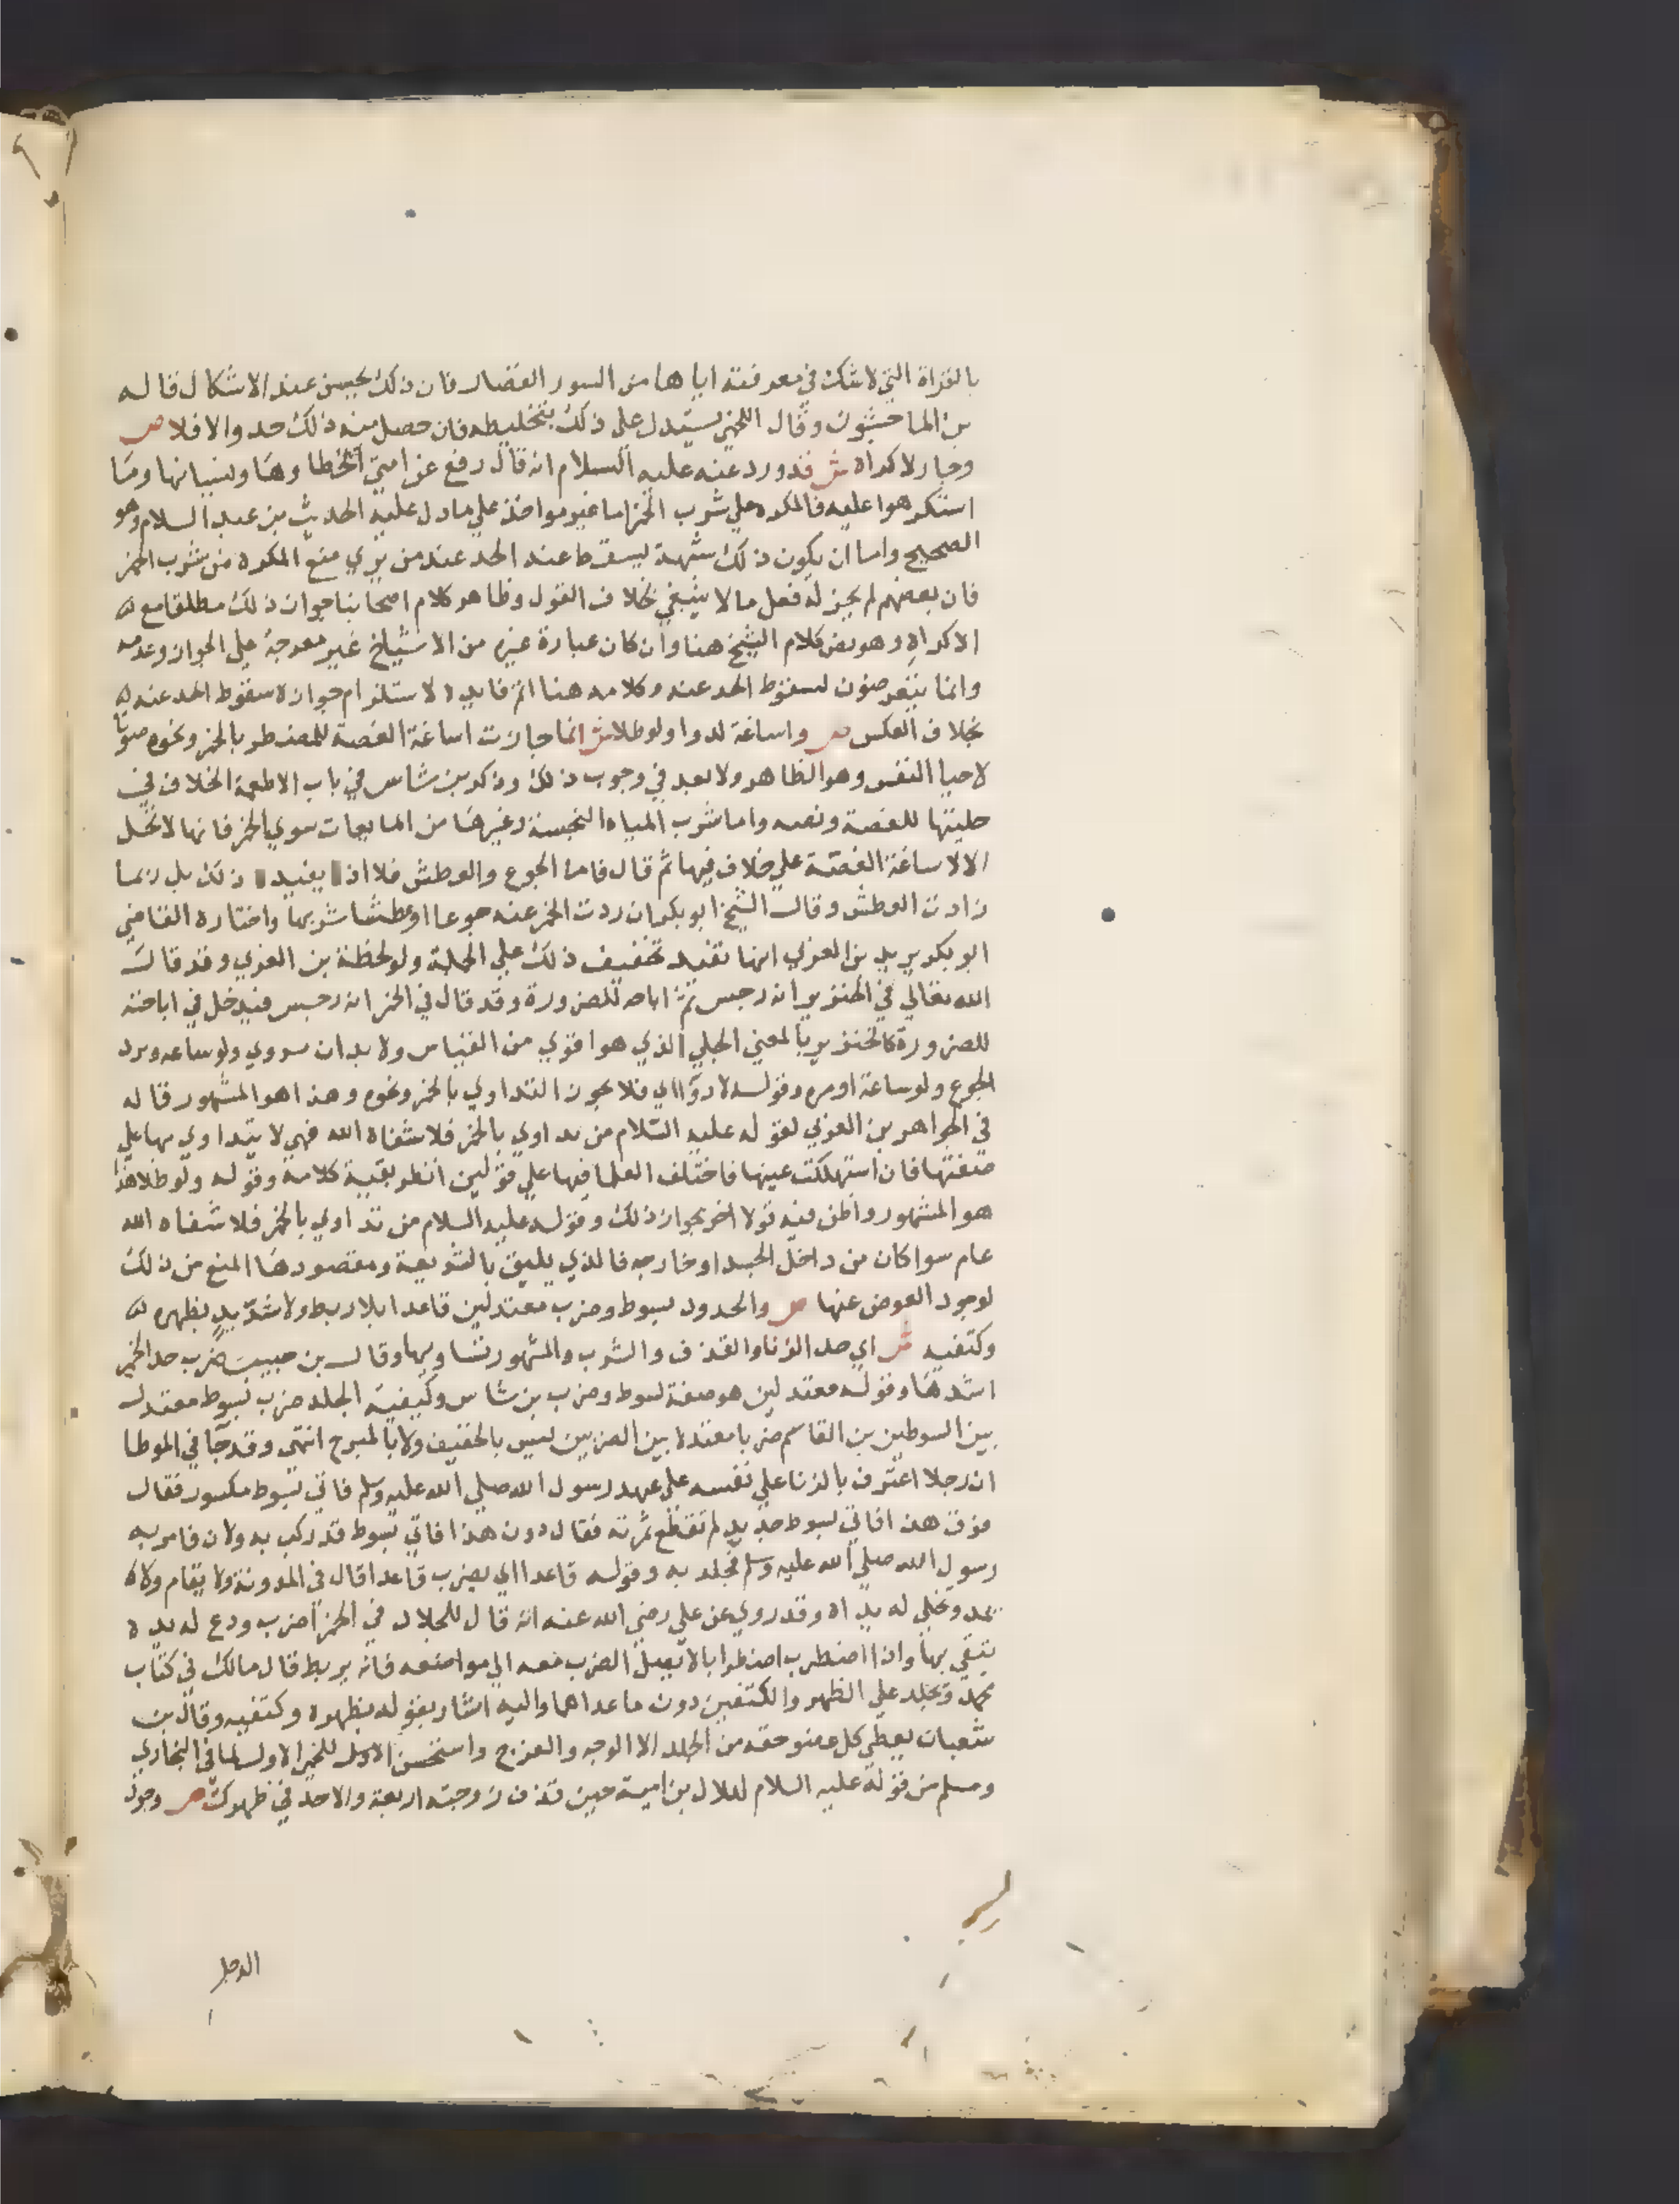 بالقراة التي لا شك في معرفته اياها من السور القصار فان ذلك يحسن عند الاشكال قاله
بن الماجشون وقال اللخمي يستدل على ذلك بتخليطه فان حصل منه ذلك حد والا فلا ص
وجاز لاكراه ش قد ورد عنه عليه السلام انه قال رفع عن امتي الخطا وهَا ونسيانها ومَا
استكرهوا عليه فالمكره علي شرب الخمر اما غير مواخذ علي ما دل عليه الحديث بن عبد السلام وهو
الصحيح واما ان يكون ذلك شبهة يسقط عند الحد عند من يري منع المكره من شرب الخمر
فان بعضهم لم يجز له فعل ما لا ينبغي بخلاف القول وظاهر كلام اصحابنا جواز ذلك مطلقا مع
الاكراه وهو نص كلام الشيخ هنا وان كان عبارة غيره من الاشياخ غير معرجة علي الجواز وعدمه
وانما يتعرضون لسقوط الحد عنه وكلامه هنا اتم فايدة لاستلزام جوازه سقوط الحد عنه
بخلاف العكس ص واساغة لا دوا ولو طلا ش انما جازت اساغة الغصة للمضطر بالخمر ونحوه صونا
لاحيا النفس وهو الظاهر ولا بعد في وجوب ذلك وذكر بن شاس في باب الاطعمة الخلاف في
حليتها للغصة ونصه واما شرب المياه النجسة وغيرهَا من المايعات سوي الخمر فانها لا تحل
الا لاساغة الغصة علي خلاف فيها ثم قال فاما الجوع والعطش فلا اذ يفيد ذلك بل ربما
زادت العطش وقال الشيخ ابو بكر ان ردت الخمر عنه جوعا او عطشا شربها واختاره القاضي
ابو بكر يريد بن العربي انها تفيد تخفيف ذلك علي الجملة ولو لحظة بن العربي وقد قال
الله تعالي في الخنزير انه رجس ثم اباحه للضرورة وقد قال في الخمر انه رجس فيدخل في اباحته
للضرورة كالخنزير بالمعني الجلي الذي هو اقوي من القياس ولا بد ان يروي ولو ساعه ويرد
الجوع ولو ساعة او مره وقوله لا دوا اي فلا يجوز التداوي بالخمر ونحوه وهذا هو المشهور قاله
في الجواهر بن العربي لقوله عليه السلام من تداوي بالخمر فلا شفاه الله فهي لا يتداوي بها علي
صفتها فان استهلكت عينها فاختلف العلما فيها علي قولين انظر بقية كلامه وقوله ولو طلا هذا
هو المشهور واظن فيه قولا اخر بجواز ذلك وقوله عليه السلام من تداوي بالخمر فلا شفاه الله
عام سوا كان من داخل الجسد او خارجه فالذي يليق بالشريعة ومقصودهَا المنع من ذلك
لوجود العوض عنها ص والحدود بسوط وضرب معتدلين قاعدا بلا ربط ولا شد يد بظهره
وكتفيه ش اي حد الزنا والقذف والشرب والمشهور تساويها وقال بن حبيب ضرب حد الخمر
اشدهَا وقوله معتدلين هو صفة لسوط وضرب بن شاس وكيفية الجلد ضرب بسوط معتدل
بين السوطين بن القاسم ضربا معتدلا بين الضربين ليس بالخفيف ولا بالمبرح انتهي وقد جا في الموطا
ان رجلا اعترف بالزنا علي نفسه علي عهد رسول الله صلي الله عليه وسلم فاتي بسوط مكسور فقال
فوق هذا فاتي بسوط جديد لم تقطع ثمرته فقال دون هذا فاتي بسوط قد ركب به ولان فامر به
رسول الله صلي الله عليه وسلم فجلد به وقوله قاعدا اي يضرب قاعدا قال في المدونة ولا يقام ولا
يمد وتخلي له يداه وقد روي عن علي رضي الله عنه انه قال للجلاد في الخمر اضرب ودع له يده
يتقي بها وان اضطرب اضطرابا لا يصل الضرب معه الي مواضعه فانه يربط قال مالك في كتاب
محمد ويجلد علي الظهر والكتفين دون ما عداهما واليه اشار بقوله بظهره وكتفيه وقال بن
شعبان يعطي كل عضو حقه من الجلد الا الوجه والفرج واستحسن الاول للخبر الاول لما في البخاري
ومسلم من قوله عليه السلام لهلال بن امية حين قذف زوجته اربعة والا حد في ظهرك ص وجرد
الرجل